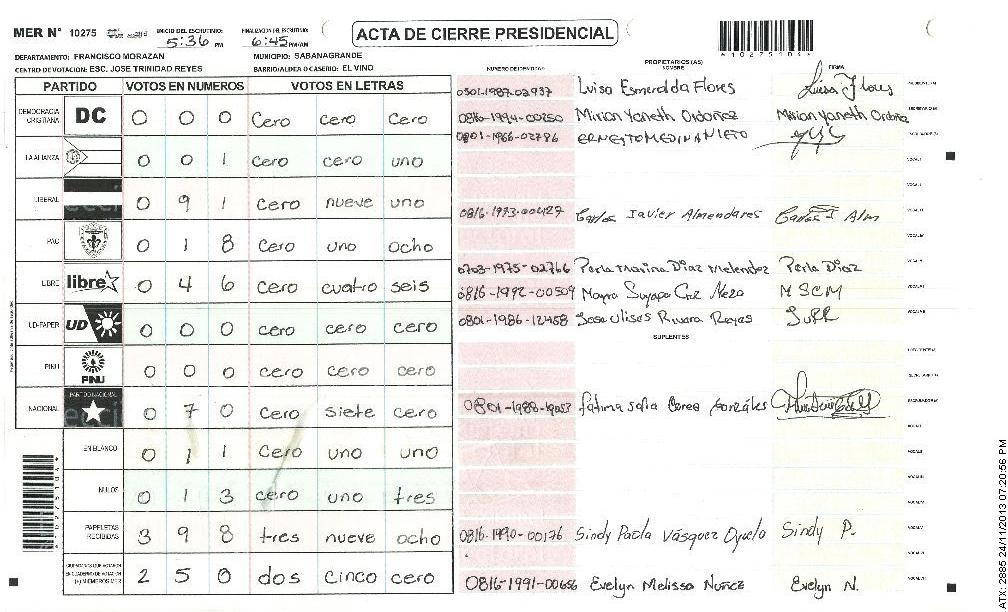 MER Nº 10275 INICIO DEL ESCRUTINIO: 5:36 PM FINALIZACION DEL ESCRUTINIO: 6:45 PM/AM
ACTA DE CIERRE PRESIDENCIAL
DEPARTAMENTO: FRANCISCO MORAZAN MUNICIPIO: SABANAGRANDE
CENTRO DE VOTACION: ESC. JOSE TRINIDAD REYES BARRIO/ALDEA O CASERIO: EL VINO
PARTIDO VOTOS EN NUMEROS VOTOS EN LETRAS
DEMOCRACIA CRISTIANA DC 0 0 0 Cero cero Cero
LA ALIANZA 0 0 1 Cero cero uno
LIBERAL 0 9 1 Cero nueve uno
PAC 0 1 8 Cero uno ocho
LIBRE libre 0 4 6 Cero cuatro seis
UD-FAPER UD 0 0 0 cero cero cero
PINU PINU 0 0 0 cero cero cero
NACIONAL PARTIDO NACIONAL 0 7 0 Cero siete cero
EN BLANCO 0 1 1 Cero uno uno
NULOS 0 1 3 cero uno tres
PAPELETAS RECIBIDAS 3 9 8 tres nueve ocho
2 5 0 dos cinco cero
PROPIETARIOS (AS)
NUMERO DE IDENTIDAD NOMBRE FIRMA
0501-1987-02937 Luisa Esmeralda Flores Luisa Flores
0816-1994-00250 Mirian Yaneth Ordoñez Mirian Yaneth Ordoñez
0801-1966-02786 ERNESTO MEDINA NIETO
0816-1973-00427 Carlos Javier Almendares Carlos J Alm
0703-1975-02766 Perla Marina Diaz Melendez Perla Diaz
0816-1992-00509 Mayra Suyapa Cruz Meza MSCM
0801-1986-12458 Jose Ulises Rivara Reyes
SUPLENTES
0801-1988-19053 fatima Sofia Corea Gonzáles
0816-1990-00176 Sindy Paola Vásquez Oyuelo Sindy P.
0816-1991-00656 Evelyn Melissa Nuñez Evelyn N.
ATX: 2985 24/11/2013 07:20:56 PM